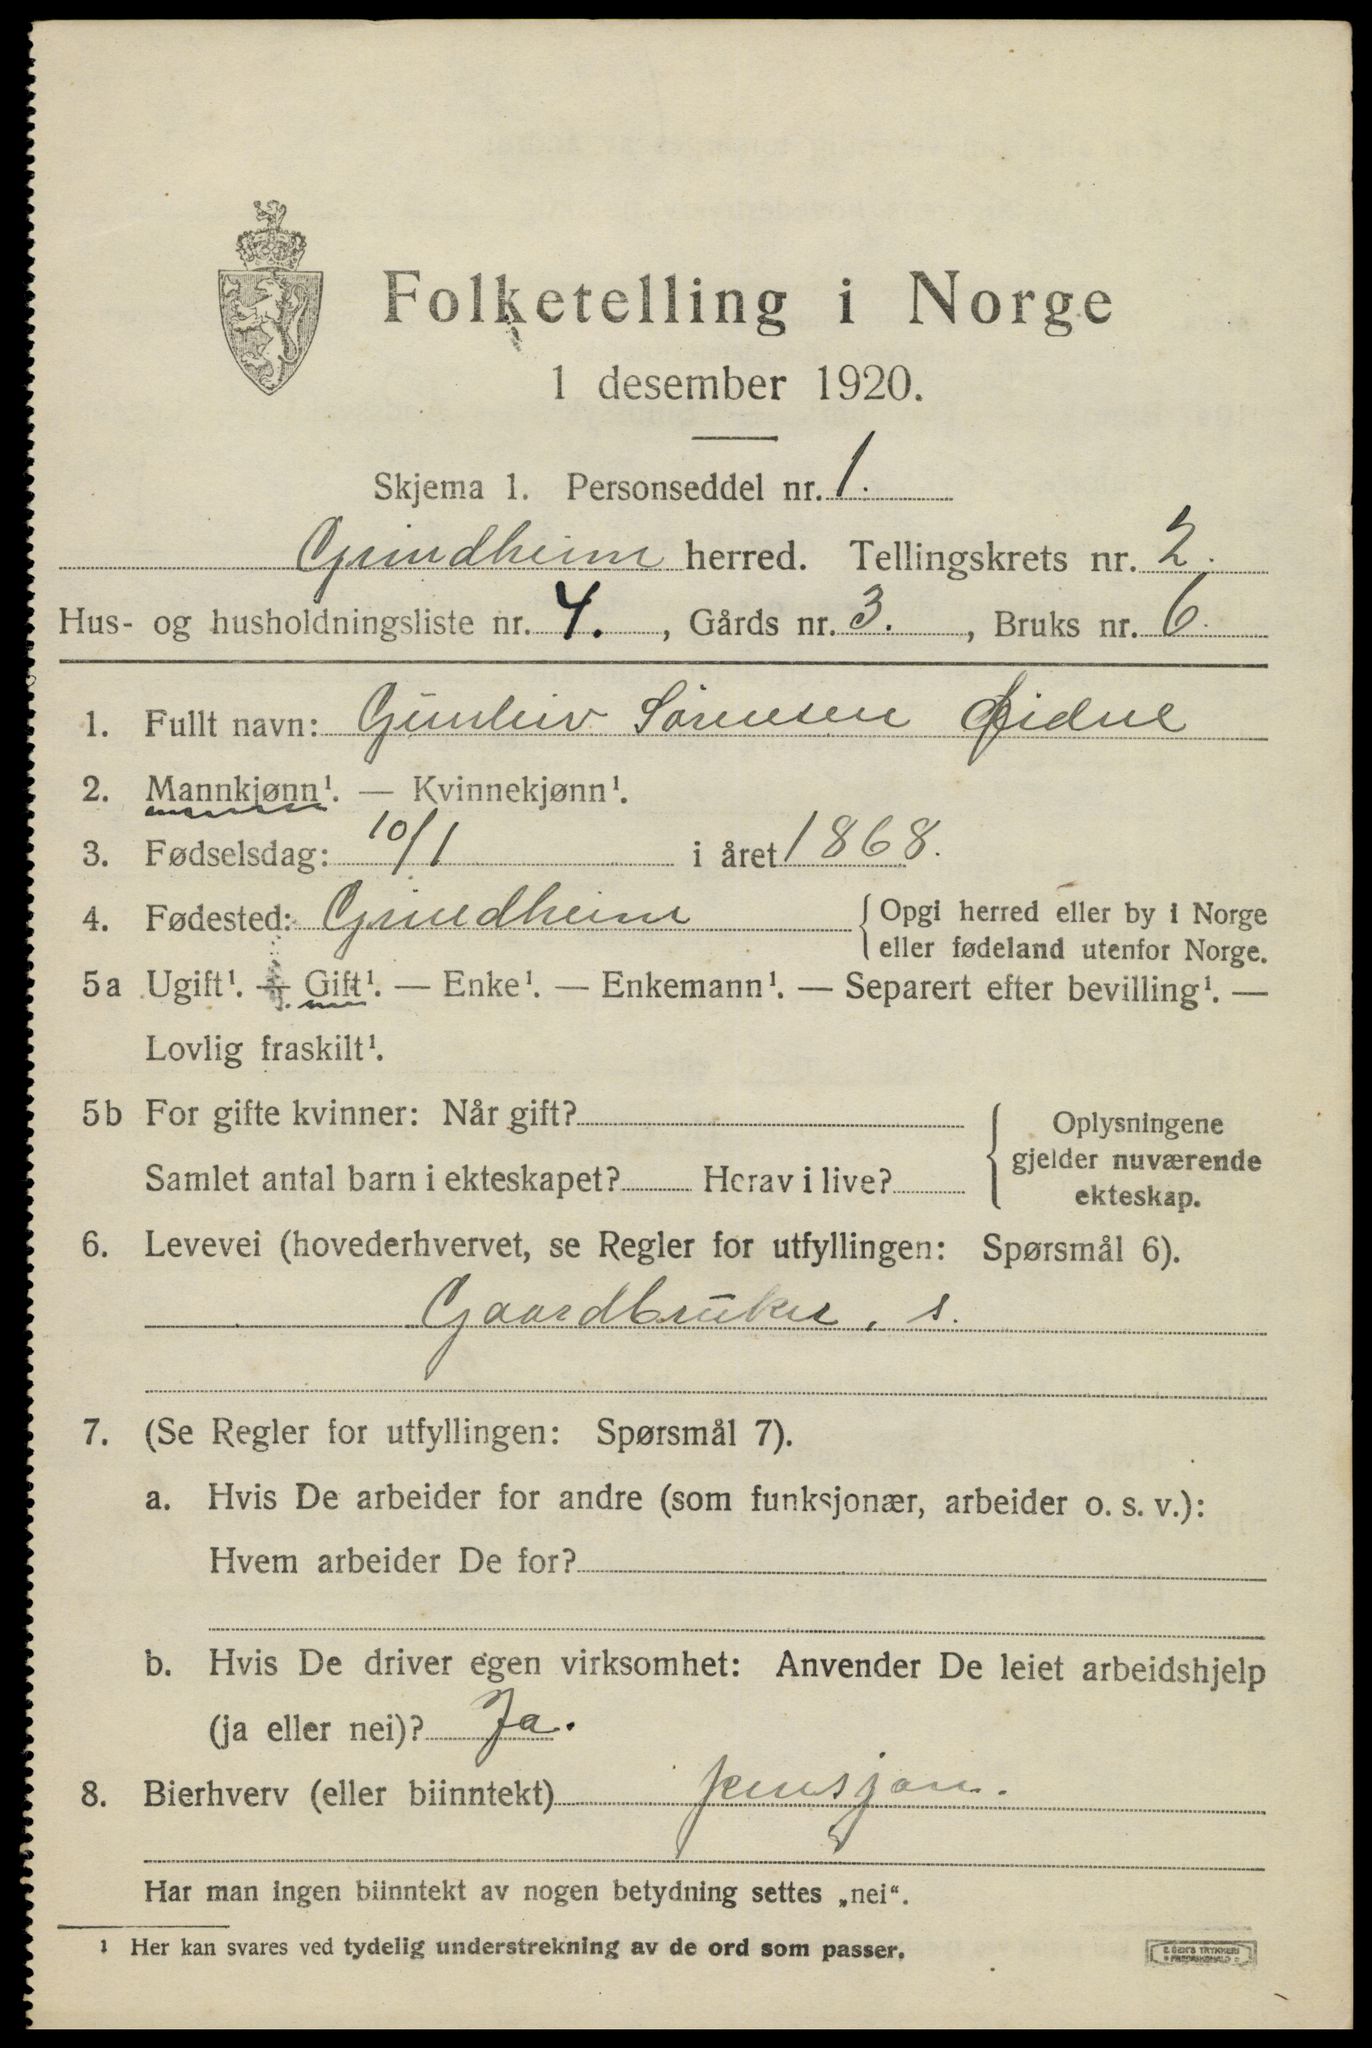 Folketelling i Norge
1 desember 1920.
Skjema 1. Personseddel nr. 1.
Grindheim herred. Tellingskrets nr. 2.
Hus- og husholdningsliste nr. 4. , Gårds nr. 3. , Bruks nr. 6.
1. Fullt navn: Gunleiv Sørensen Øidne
2. Mannkjønn¹. — Kvinnekjønn¹.
3. Fødselsdag: 10/1 i året 1868.
4. Fødested: Grindheim {Opgi herred eller by i Norge
eller fødeland utenfor Norge.
5a Ugift¹. — Gift¹. — Enke¹. — Enkemann¹. — Separert efter bevilling¹. —
Lovlig fraskilt¹.
5b For gifte kvinner: Når gift?
Samlet antal barn i ekteskapet? Herav i live?
{Oplysningene
gjelder nuværende
ekteskap.
6. Levevei (hovederhvervet, se Regler for utfyllingen: Spørsmål 6).
Gaardbruker, s.
7. (Se Regler for utfyllingen: Spørsmål 7).
a. Hvis De arbeider for andre (som funksjonær, arbeider o. s. v.):
Hvem arbeider De for?
b. Hvis De driver egen virksomhet: Anvender De leiet arbeidshjelp
(ja eller nei)? Ja.
8. Bierhverv (eller biinntekt) pensjon.
Har man ingen biinntekt av nogen betydning settes „nei“.
1 Her kan svares ved tydelig understrekning av de ord som passer.
E. SEM'S TRYKKERI
FREDRIKSHALD